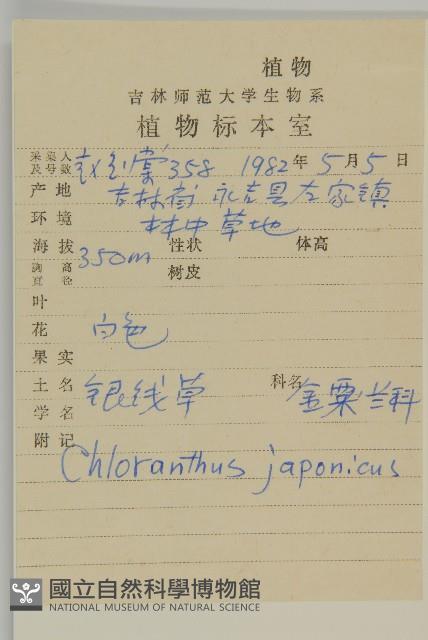 植物
吉林师范大学生物系
植物标本室
采集人及号数 358 1982年5月5日
产地 吉林省 永吉县左家镇
环境 林中草地
海拔 350m 性状 体高
胸高直径 树皮
叶
花 白色
果实
土名 银线草 科名 金粟兰科
学名
附记
Chloranthus japonicus
國立自然科學博物館
NATIONAL MUSEUM OF NATURAL SCIENCE